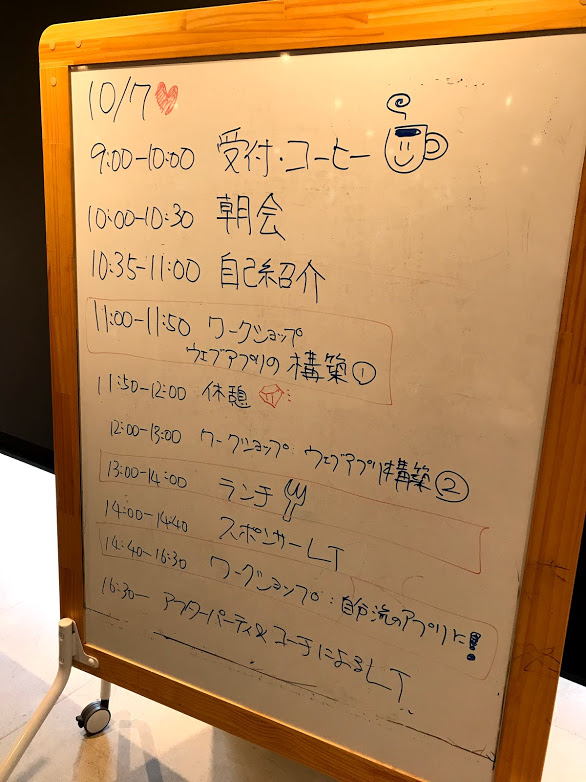 10/7
9:00-10:00 受付・コーヒー
10:00-10:30 朝会
10:35-11:00 自己紹介
11:00-11:50 ワークショップ
ウェブアプリの構築①
11:50-12:00 休憩
12:00-13:00 ワークショップ ウェブアプリ構築②
13:00-14:00 ランチ
14:00-14:40 スポンサーLT
14:40-16:30 ワークショップ:自分流のアプリに!
16:30- アフターパーティ&コーチによるLT